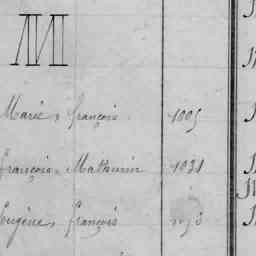 M
Marie, françois 1005
françois, Mathurin 1031
Eugène, françois